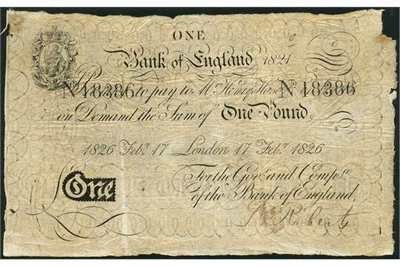 ONE
Bank of England 1821
No 18386 to pay to Mr Hase No 18386
on Demand the Sum of One Pound
1826 Feb.y 17 London 17 Feb.y 1826
For the Gov.r and Comp.a
of the Bank of England,
One